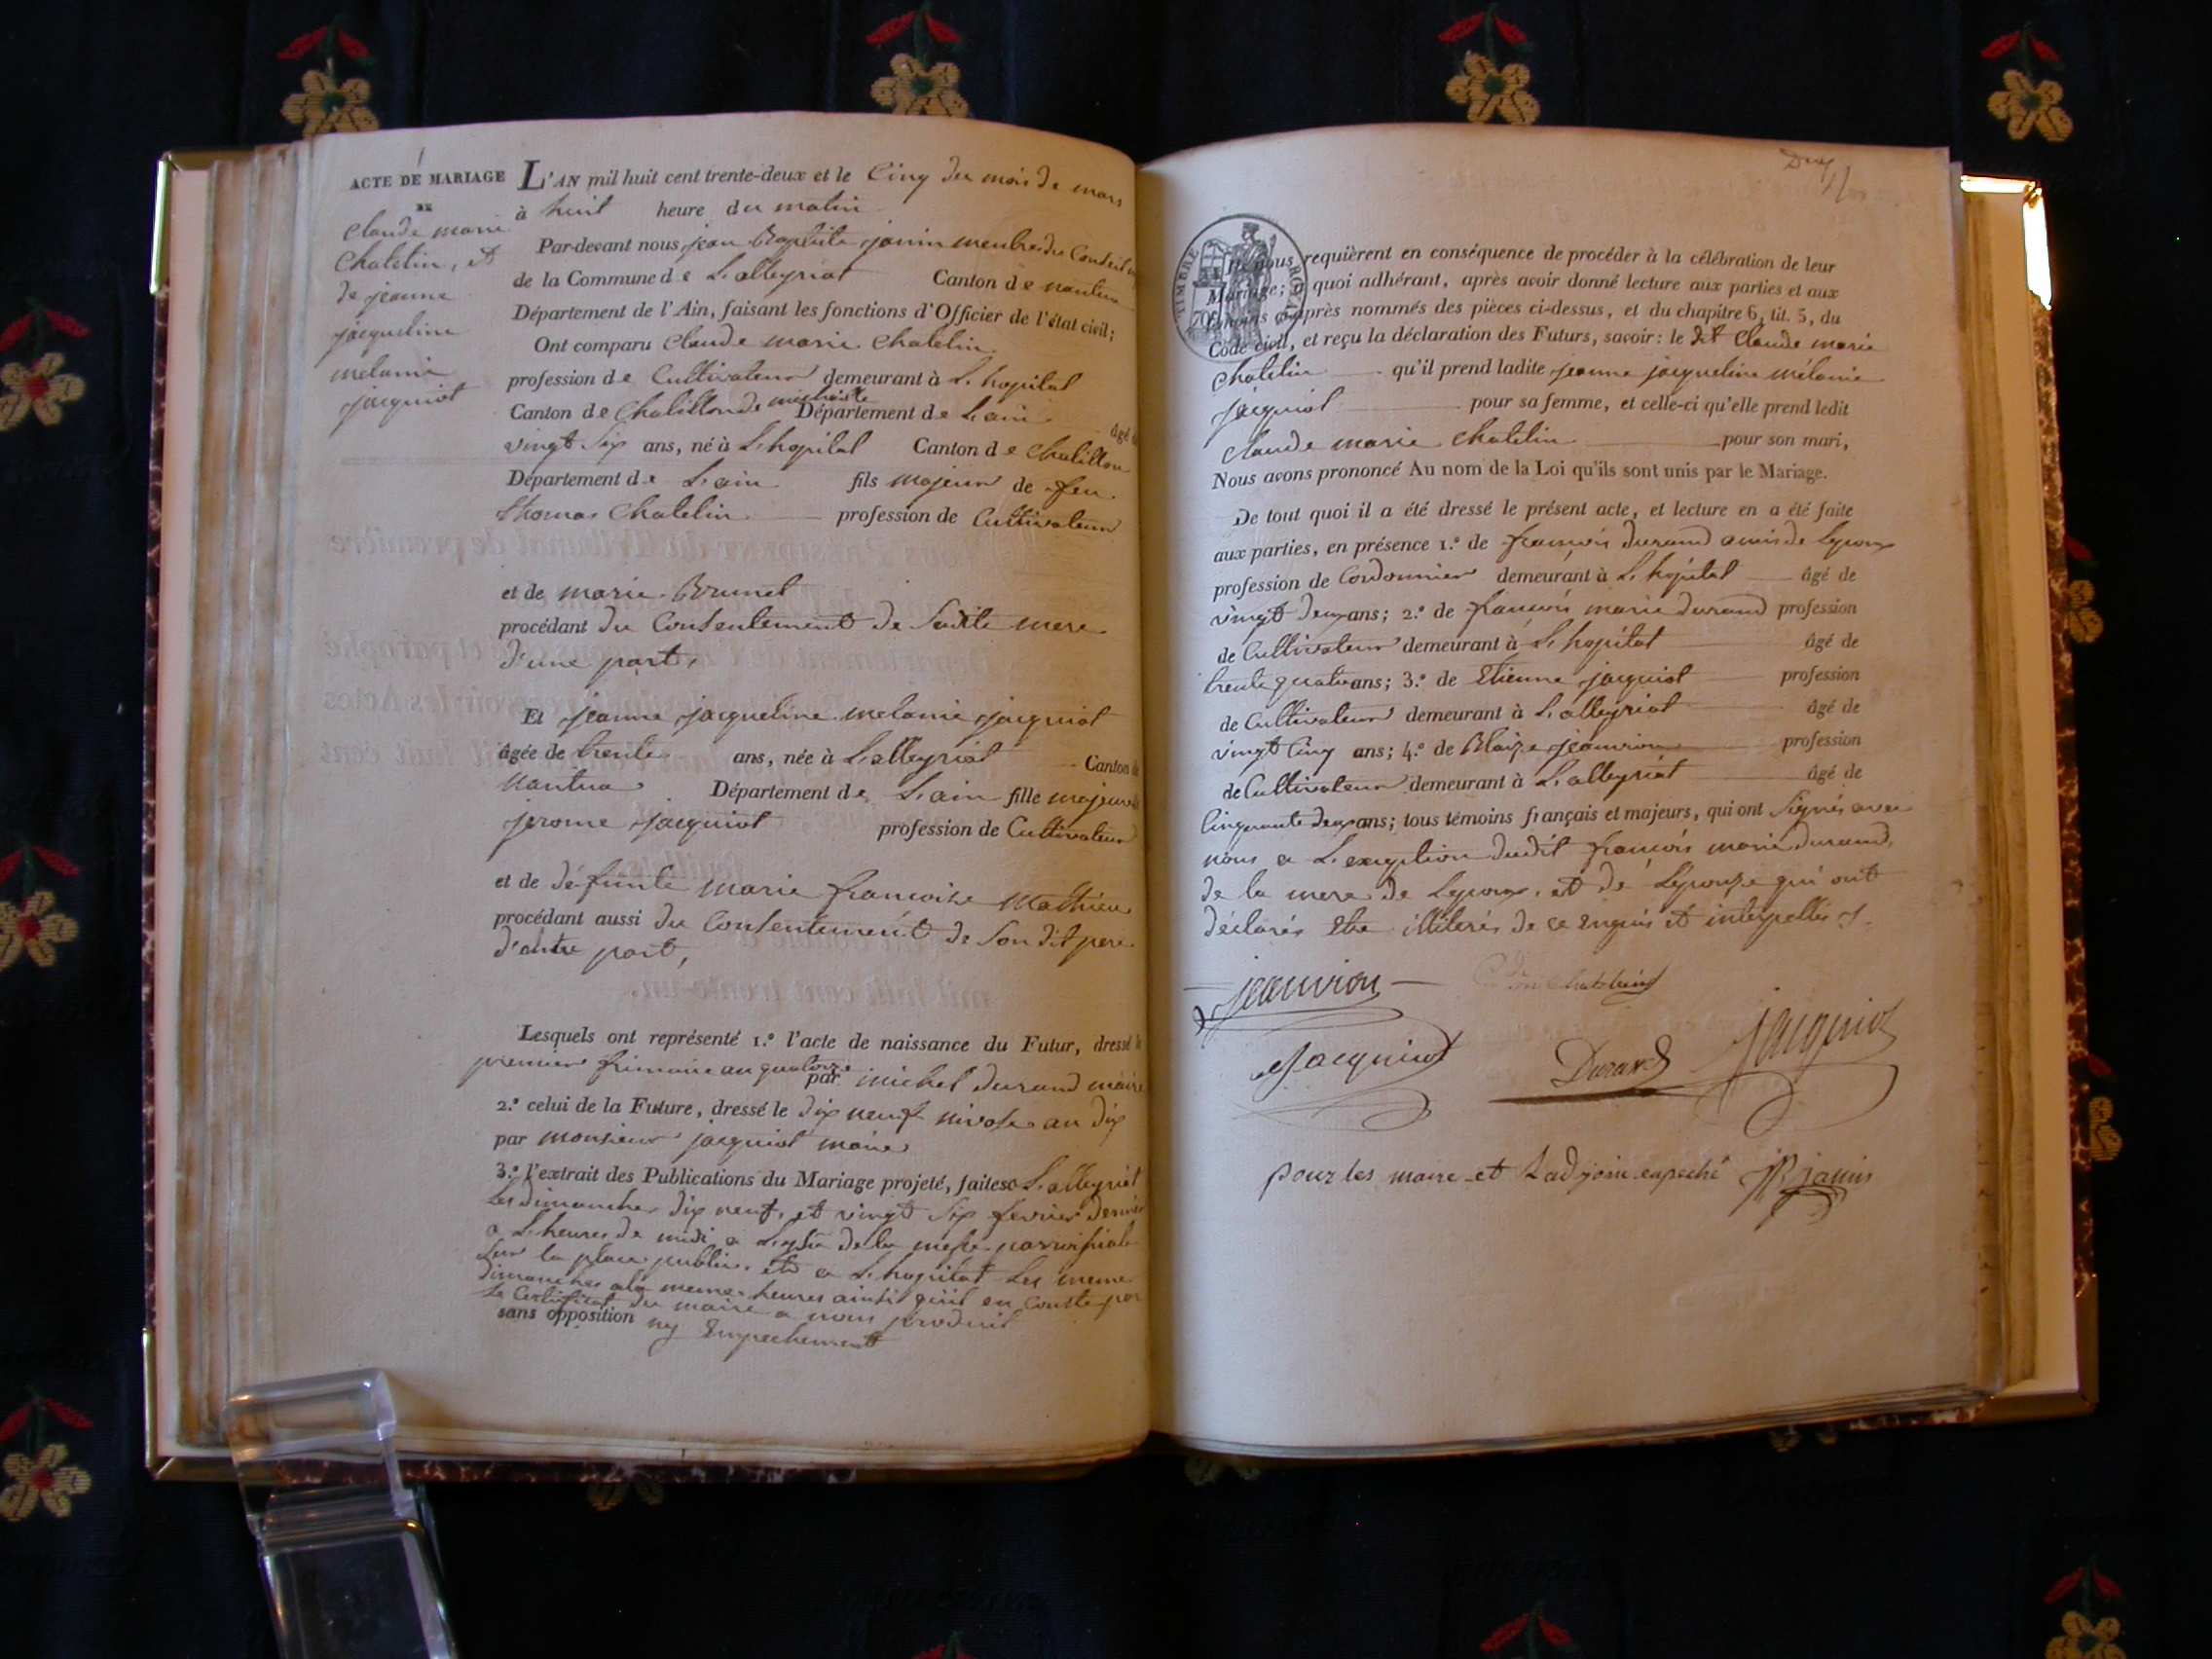 ACTE DE MARIAGE
DE
Claude marie
Chatelin, et
de jeanne
jacqueline
melanie
jacquiot
L'AN mil huit cent trente-deux et le Cinq du mois de mars
à huit heure du matin
Par-devant nous jean Baptiste janin membre du Conseil
de la Commune de L'alleyriat Canton de nantua
Département de l'Ain, faisant les fonctions d'Officier de l'état civil;
Ont comparu Claude marie Chatelin
profession de Cultivateur demeurant à L'hopital
Canton de Chatillon de michaille Département de L'ain âgé
vingt Six ans, né à L'hopital Canton de Chatillon
Département de L'ain fils majeur de feu
thomas Chatelin profession de Cultivateur
et de marie Brunet
procédant du Consentement de Sadite mere
d'une part,
Et jeanne jacqueline melanie jacquiot
âgée de trente ans, née à L'alleyriat Canton de
nantua Département de L'ain fille majeure
jerome jacquiot profession de Cultivateur
et de défunte marie francoise Mathieu
procédant aussi du Consentement de Son dit pere
d'autre part,
Lesquels ont représenté 1.º l'acte de naissance du Futur, dressé le
premier frimaire an quatorze par michel durand maire
2.º celui de la Future, dressé le dix neuf nivose an dix
par monsieur jacquiot maire
3.º l'extrait des Publications du Mariage projeté, faites a L'alleyriat
Les dimanches dix neuf, et vingt Six fevrier dernier
a L'heures de midi a de la messe parroissiale
Sur la place publique et a L'hopital Les meme
dimanches a la meme heures ainsi qu'il en Conste par
Le Certificat du maire a nous produit
sans opposition ny Empechement
TIMBRE ROYAL
70
Ils nous requièrent en conséquence de procéder à la célébration de leur
Mariage; à quoi adhérant, après avoir donné lecture aux parties et aux
témoins ci-après nommés des pièces ci-dessus, et du chapitre 6, tit. 5, du
Code civil, et reçu la déclaration des Futurs, savoir: le dit Claude marie
Chatelin qu'il prend ladite jeanne jacqueline mélanie
jacquiot pour sa femme, et celle-ci qu'elle prend ledit
Claude marie Chatelin pour son mari,
Nous avons prononcé Au nom de la Loi qu'ils sont unis par le Mariage.
De tout quoi il a été dressé le présent acte, et lecture en a été faite
aux parties, en présence 1.º de francois durand amis de Lepoux
profession de Cordonnier demeurant à L'hopital âgé de
vingt deux ans; 2.º de francois marie durand profession
de Cultivateur demeurant à L'hopital âgé de
trente quatre ans; 3.º de Etienne jacquiot profession
de Cultivateur demeurant à L'alleyriat âgé de
vingt Cinq ans; 4.º de Blaize jeanvion profession
de Cultivateur demeurant à L'alleyriat âgé de
Cinquante deux ans; tous témoins français et majeurs, qui ont Signés avec
nous a L'exeption dudit francois marie durand,
de la mere de Lepoux, et de Lepouse qui ont
déclarés Etre illiterés de ce Enquis et interpellés
jeanvion
Chatelain
jacquiot
Durand
jacquiot
pour les maire et Ladjoin enpeché JB janin